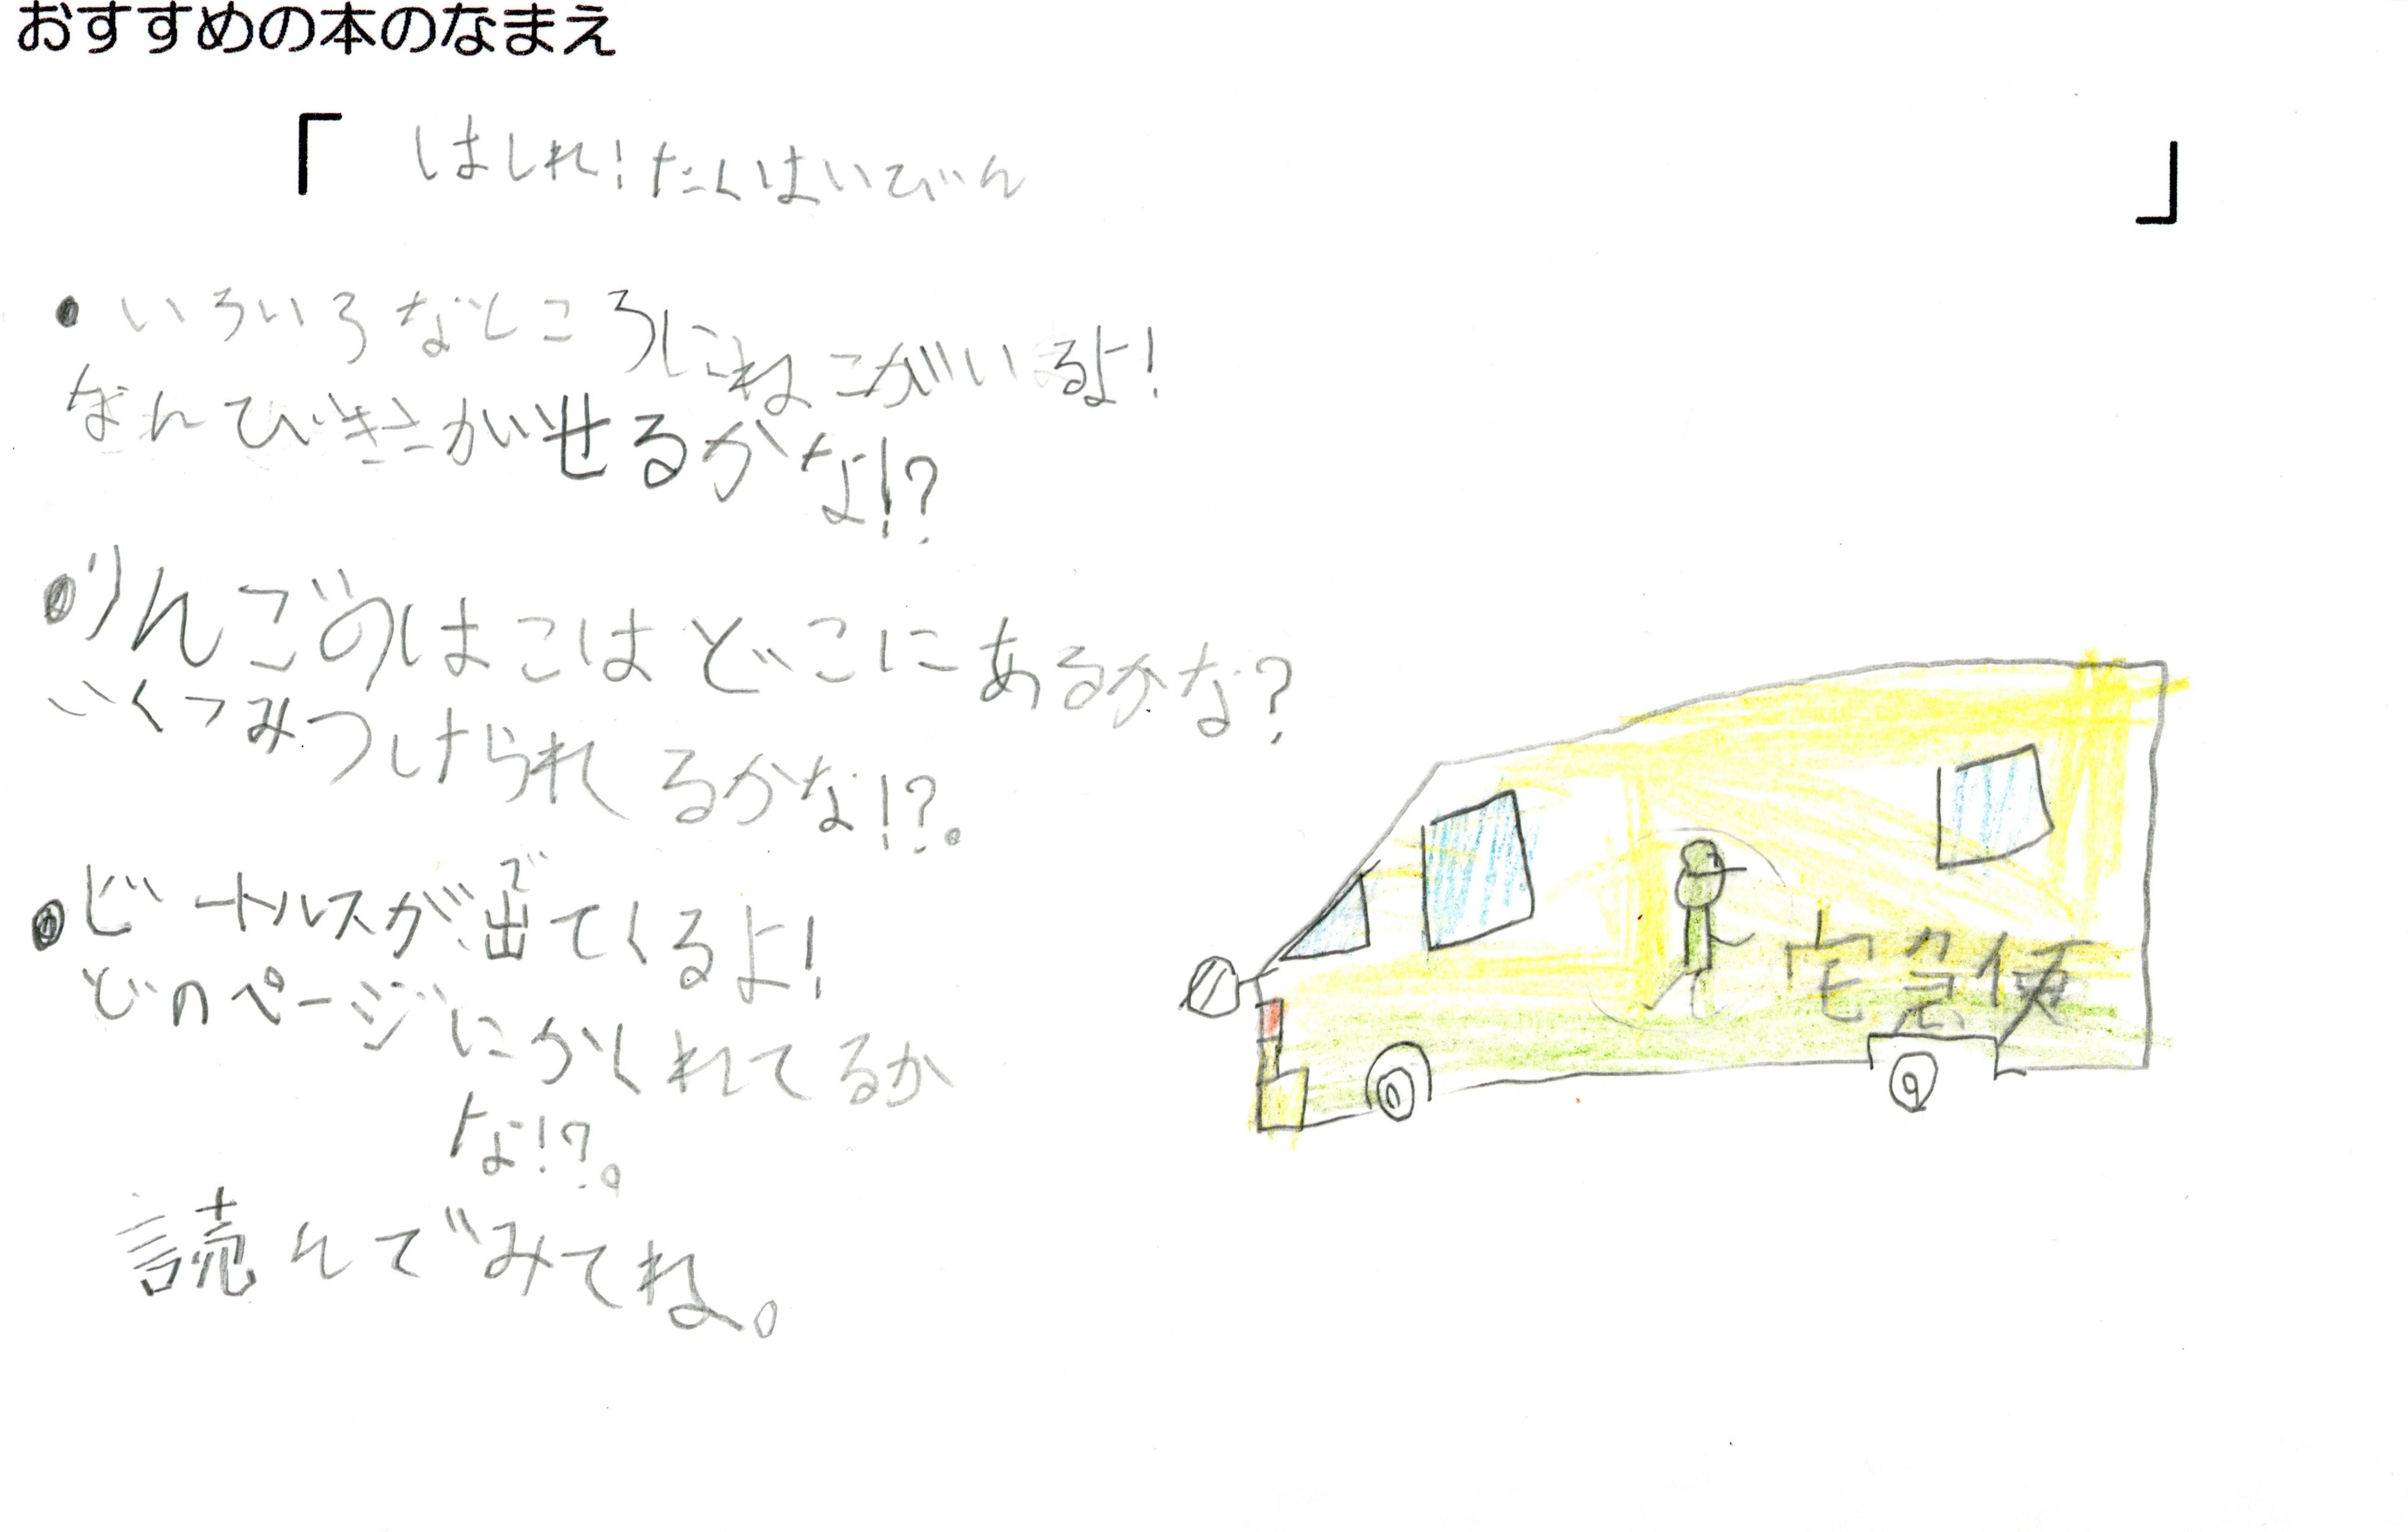 おすすめの本のなまえ
「はしれ!たくはいびん」
・いろいろなところにねこがいるよ!
なんびきさがせるかな!?
・りんごのはこはどこにあるかな?
いくつみつけられるかな!?。
・ビートルスが出てくるよ!
で
どのページにかくれてるか
な!?。
読んでみてね。
宅急便